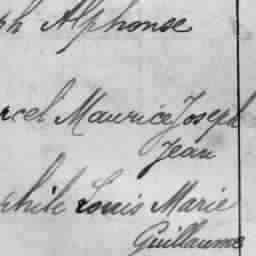 ph Alphonse
rcel Maurice Joseph
Jean
phile Louis Marie
Guillaume